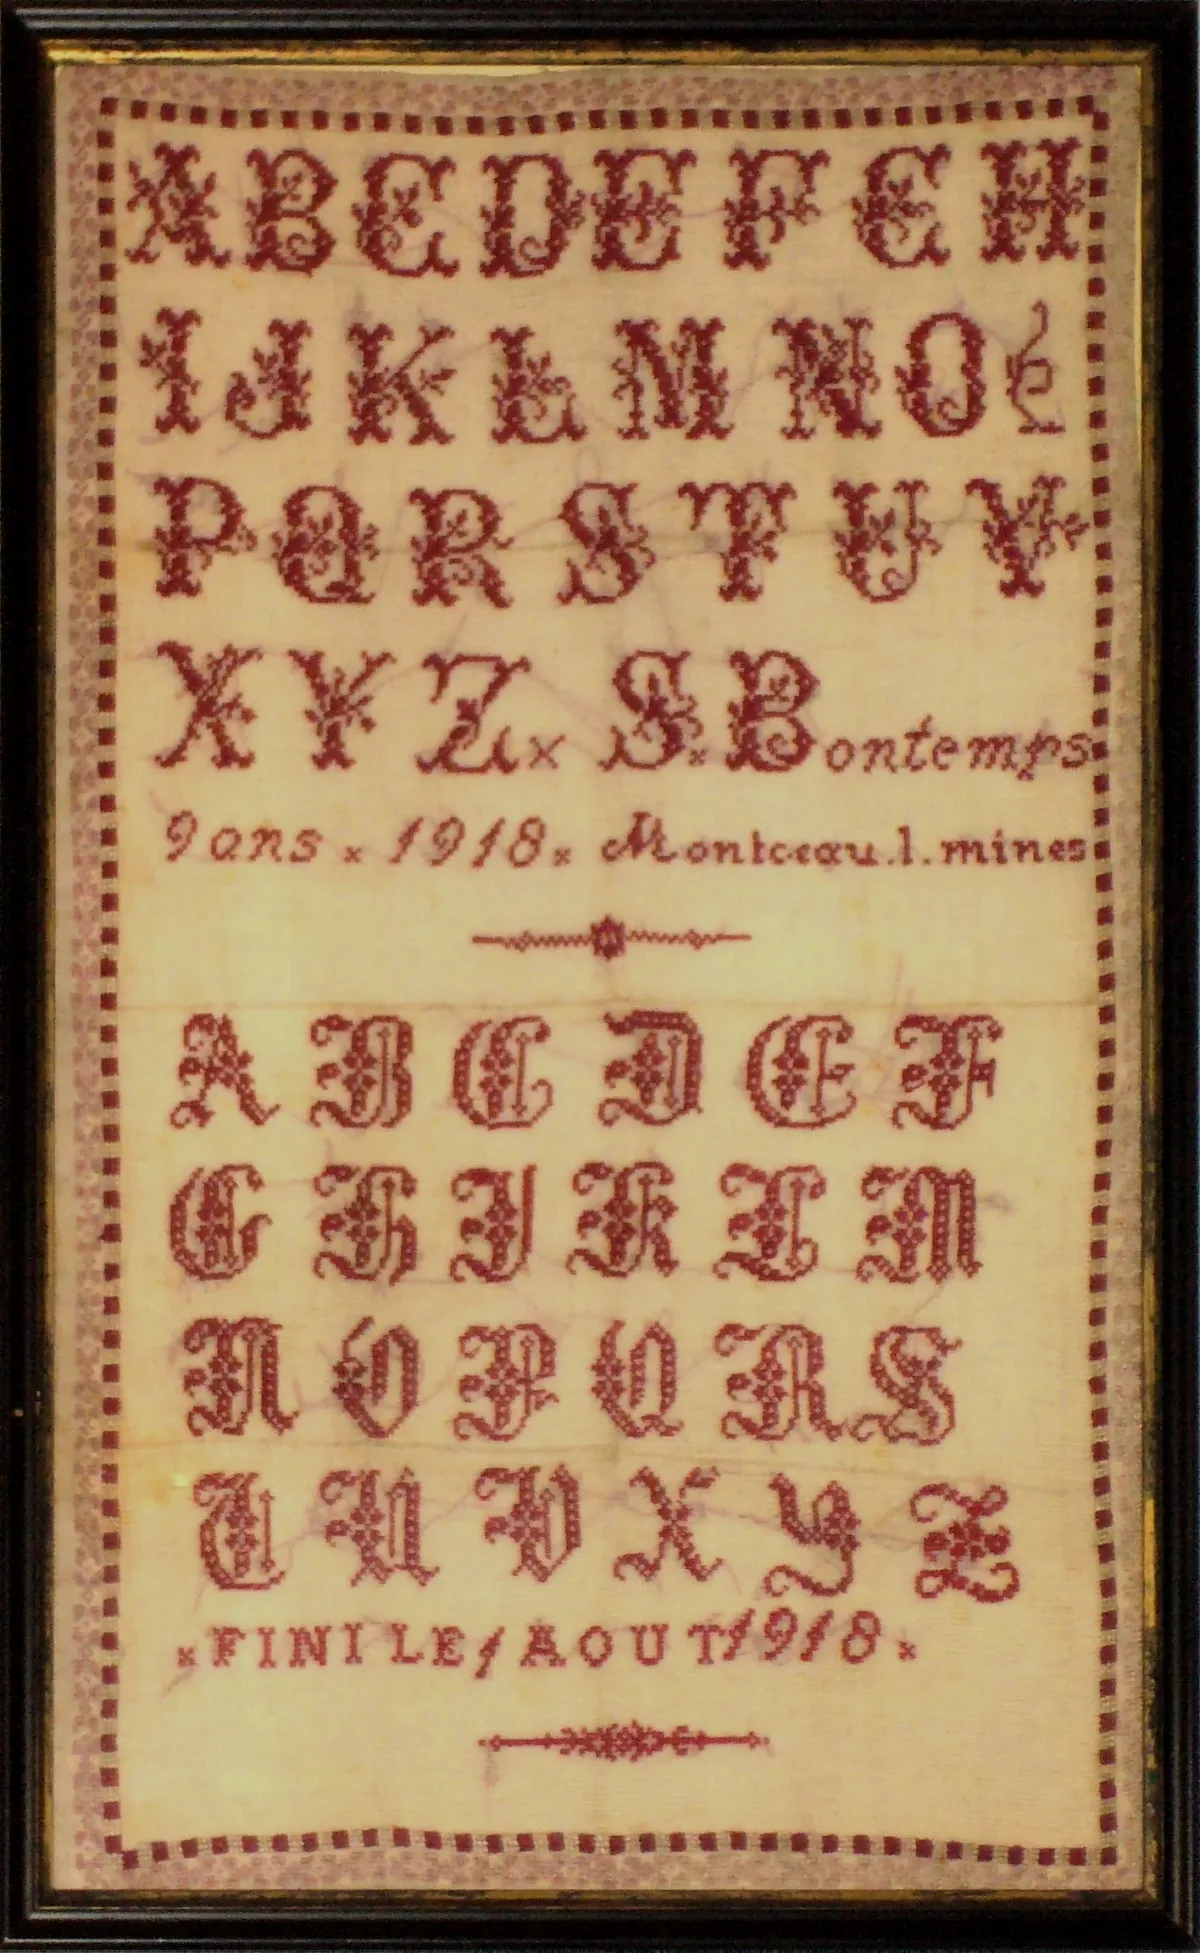 A B C D E F G H
I J K L M N O &
P Q R S T U V
X Y Z x S x Bontemps
9 ans x 1918 x Montceau.l.mines
A B C D E F
G H I K L M
N O P Q R S
T U V X Y Z
x FINI LE 1 AOUT 1918 x